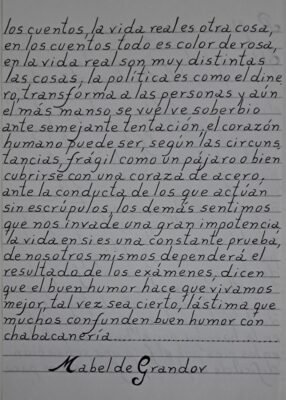 los cuentos, la vida real es otra cosa,
en los cuentos todo es color de rosa,
en la vida real son muy distintas
las cosas, la política es como el dine
ro, transforma a las personas y aún
el más manso se vuelve soberbio
ante semejante tentación, el corazón
humano puede ser, según las circuns
tancias, frágil como un pájaro o bien
cubrirse con una coraza de acero,
ante la conducta de los que actúan
sin escrúpulos, los demás sentimos
que nos invade una gran impotencia,
la vida en si es una constante prueba,
de nosotros mismos dependerá el
resultado de los exámenes, dicen
que el buen humor hace que vivamos
mejor, tal vez sea cierto, lástima que
muchos confunden buen humor con
chabacanería..............................
Mabel de Grandov